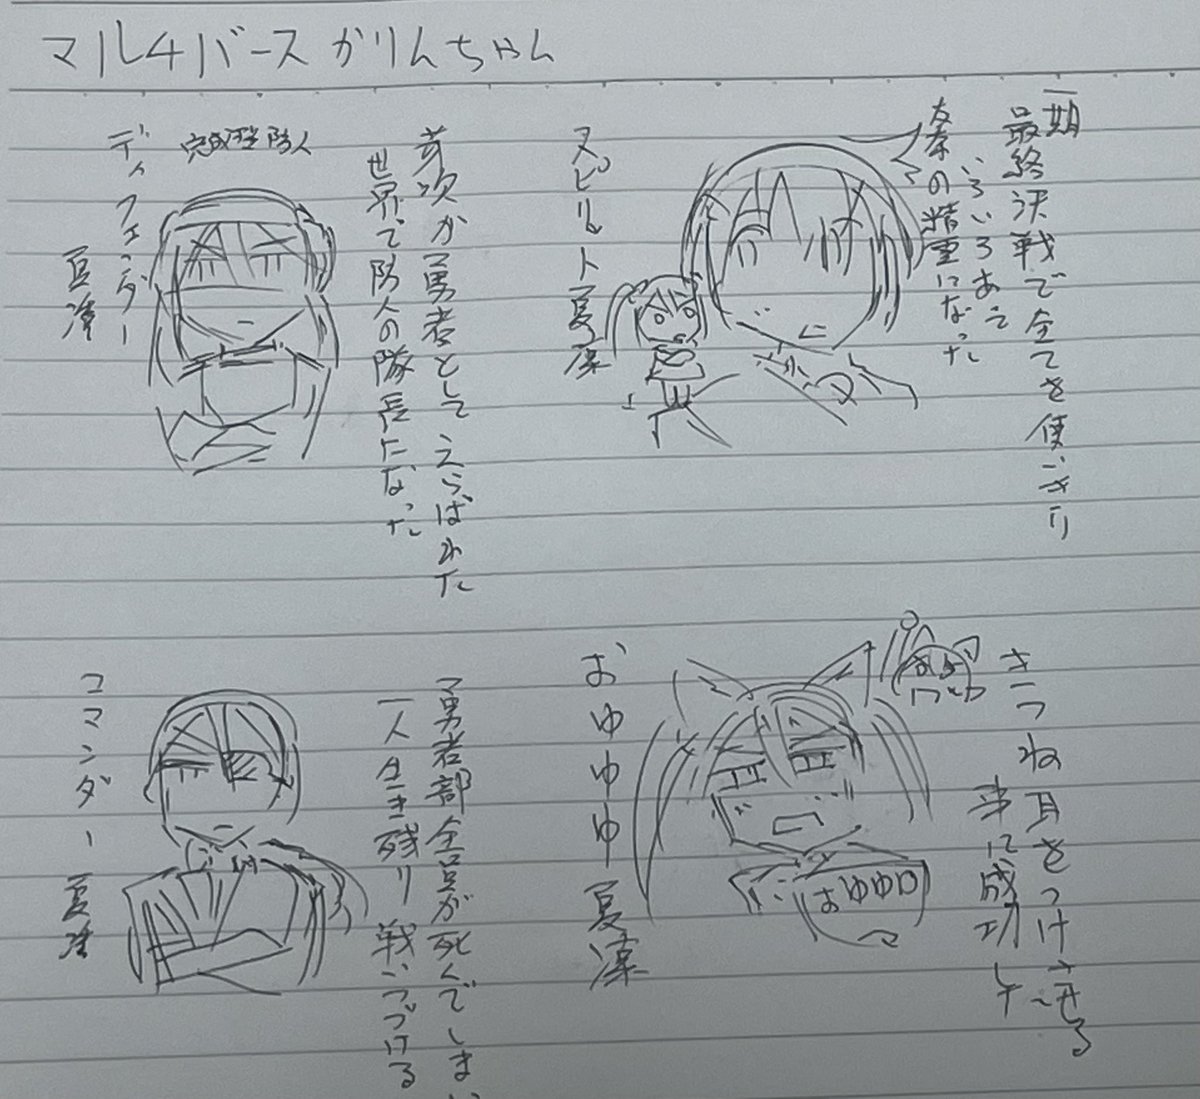 マルチバースかりんちゃん
一期
最終決戦で全てを使いきり
いろいろあって
春の精霊になった
スピリット夏凜
芽吹が勇者としてえらばれた
世界で防人の隊長になった
完成型防人
ディフェンダー
夏凜
きつねの耳をつけさせる
事に成功した
おゆゆゆ夏凜
おゆゆ
勇者部全員が死んでしまい
一人生き残り戦いつづける
コマンダー夏凜